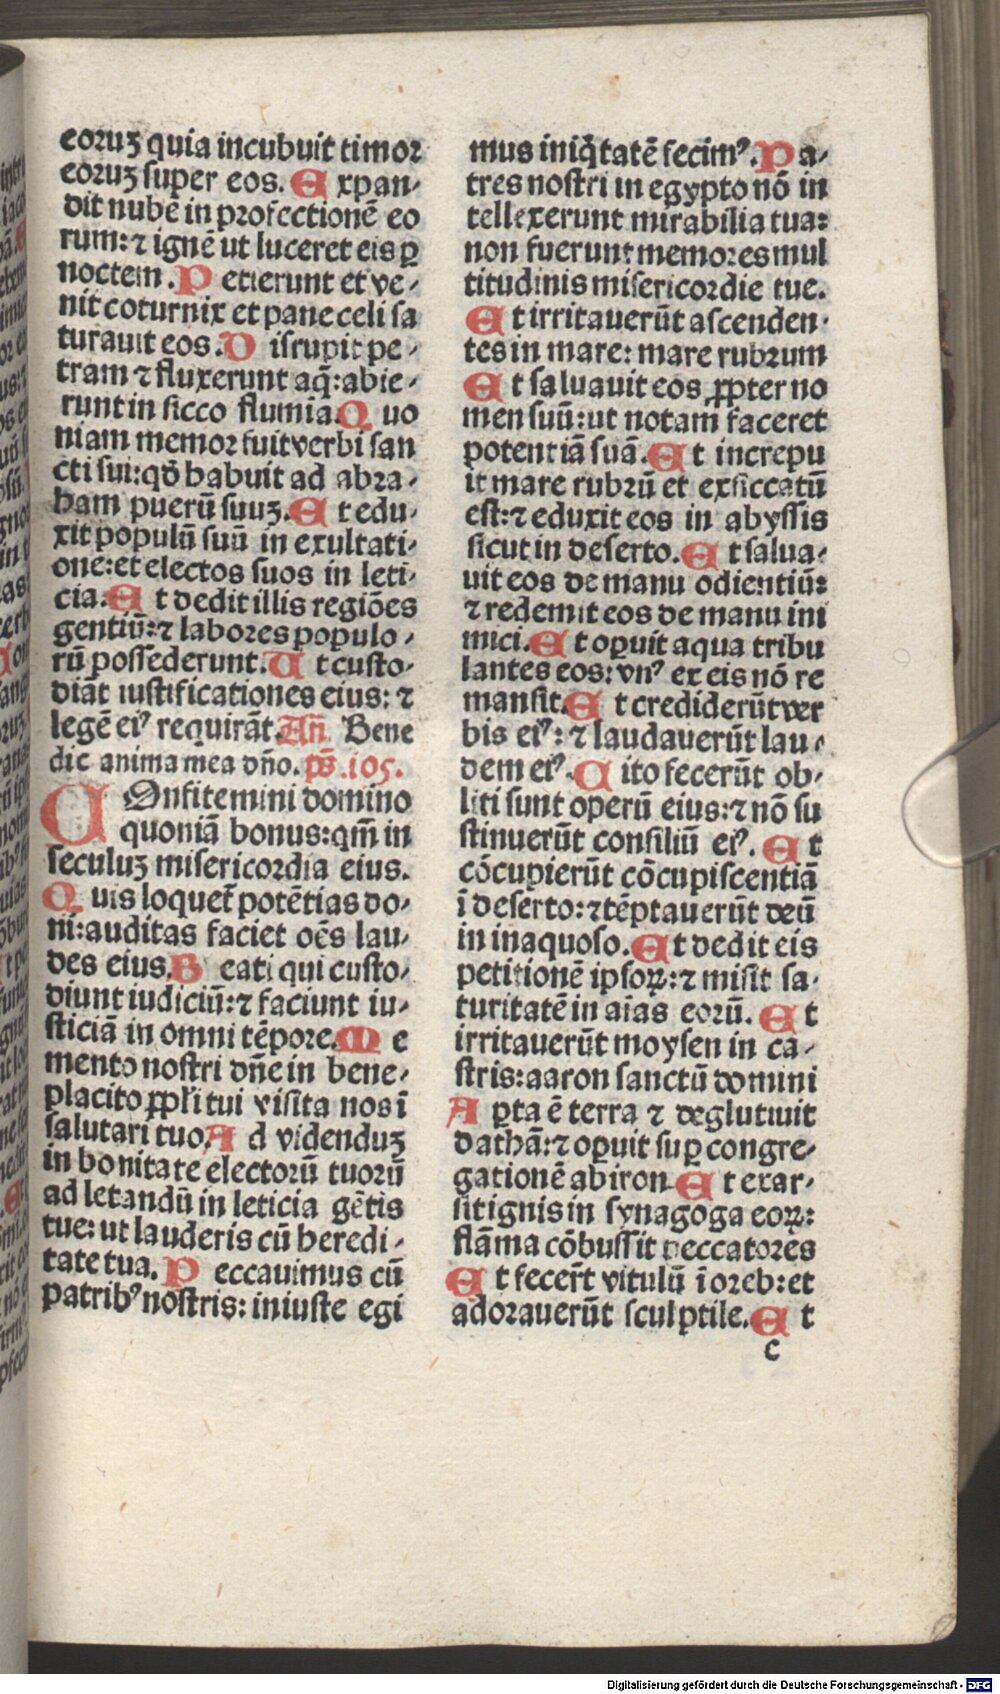 eoruꝫ quia incubuit timor
eoruꝫ super eos. Expan-
dit nubē in profectionē eo
rum: ⁊ ignē ut luceret eis ꝑ
noctem. Petierunt et ve-
nit coturnix et pane celi sa
turauit eos. Disrupit pe-
tram ⁊ fluxerunt aq̄: abie-
runt in sicco flumia. Quo
niam memor fuit verbi san
cti sui: qđ habuit ad abra-
ham puerū suuꝫ. Et edu-
xit populū suū in exultati-
one: et electos suos in leti-
cia. Et dedit illis regiōes
gentiū: ⁊ labores populo-
rū possederunt. Ut custo-
diāt iustificationes eius: ⁊
legē eiꝰ requirāt. Añ. Bene
dic anima mea dño. ps̄. 105.
COnfitemini domino
quoniā bonus: qm̄ in
seculuꝫ misericordia eius.
Quis loquet̄ potētias do-
ni: auditas faciet oēs lau-
des eius. Beati qui custo-
diunt iudiciū: ⁊ faciunt iu-
sticiā in omni tēpore. Me
mento nostri dñe in bene-
placito ꝓpl̄i tui visita nos ī
salutari tuo. Ad videnduꝫ
in bonitate electorū tuorū
ad letandū in leticia gētis
tue: ut lauderis cū heredi-
tate tua. Peccauimus cū
patribꝰ nostris: iniuste egi
mus iniq̄tatē fecimꝰ. Pa-
tres nostri in egypto nō in
tellexerunt mirabilia tua:
non fuerunt memores mul
titudinis misericordie tue.
Et irritauerūt ascenden-
tes in mare: mare rubrum
Et saluauit eos ꝓpter no
men suū: ut notam faceret
potentiā suā. Et increpu
it mare rubrū et exsiccatū
est: ⁊ eduxit eos in abyssis
sicut in deserto. Et salua-
uit eos de manu odientiū:
⁊ redemit eos de manu ini
mici. Et oꝑuit aqua tribu
lantes eos: vnꝰ ex eis nō re
mansit. Et crediderūt ver
bis eiꝰ: ⁊ laudauerūt lau-
dem eiꝰ. Cito fecerūt ob-
liti sunt operū eius: ⁊ nō su
stinuerūt consiliū eiꝰ. Et
cōcupierūt cōcupiscentiā
ī deserto: ⁊ tēptauerūt deū
in inaquoso. Et dedit eis
petitionē ipsoꝝ: ⁊ misit sa-
turitatē in aīas eorū. Et
irritauerūt moysen in ca-
stris: aaron sanctū domini
Aꝑta ē terra ⁊ deglutiuit
dathā: ⁊ oꝑuit suꝑ congre-
gationē abiron. Et exar-
sit ignis in synagoga eoꝝ:
flāma cōbussit peccatores
Et fecer̄t vitulū ī oreb: et
adorauerūt sculptile. Et
c
Digitalisierung gefördert durch die Deutsche Forschungsgemeinschaft - DFG